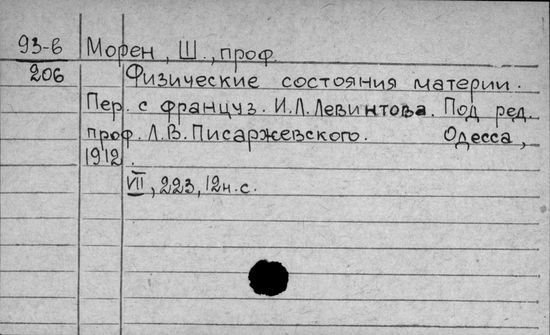 93-6 Морен, Ш., проф.
206 Физические состояния материи.
Пер. с француз. И.Л.Левинтова. Под ред.
проф. Л.В.Писаржевского. Одесса,
1912.
VII, 223, 12н.с.